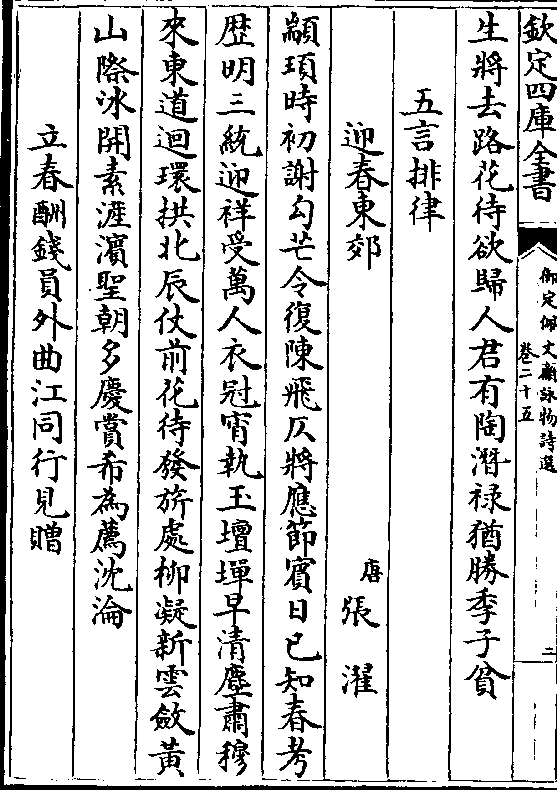 欽定四庫全書
御定佩文齋詠物詩選
卷二十五
二
生將去路花待欲歸人君有陶潛禄猶勝季子貧
五言排律
迎春東郊
唐張濯
顓頊時初謝勾芒令復陳飛灰將應節賓日已知春考
厯明三統迎祥受萬人衣冠宵執玉壇墠早清塵肅穆
來東道迴環拱北辰仗前花待發旂處柳凝新雲斂黄
山際冰開素滻濱聖朝多慶賞希為薦沈淪
立春酬錢員外曲江同行見贈